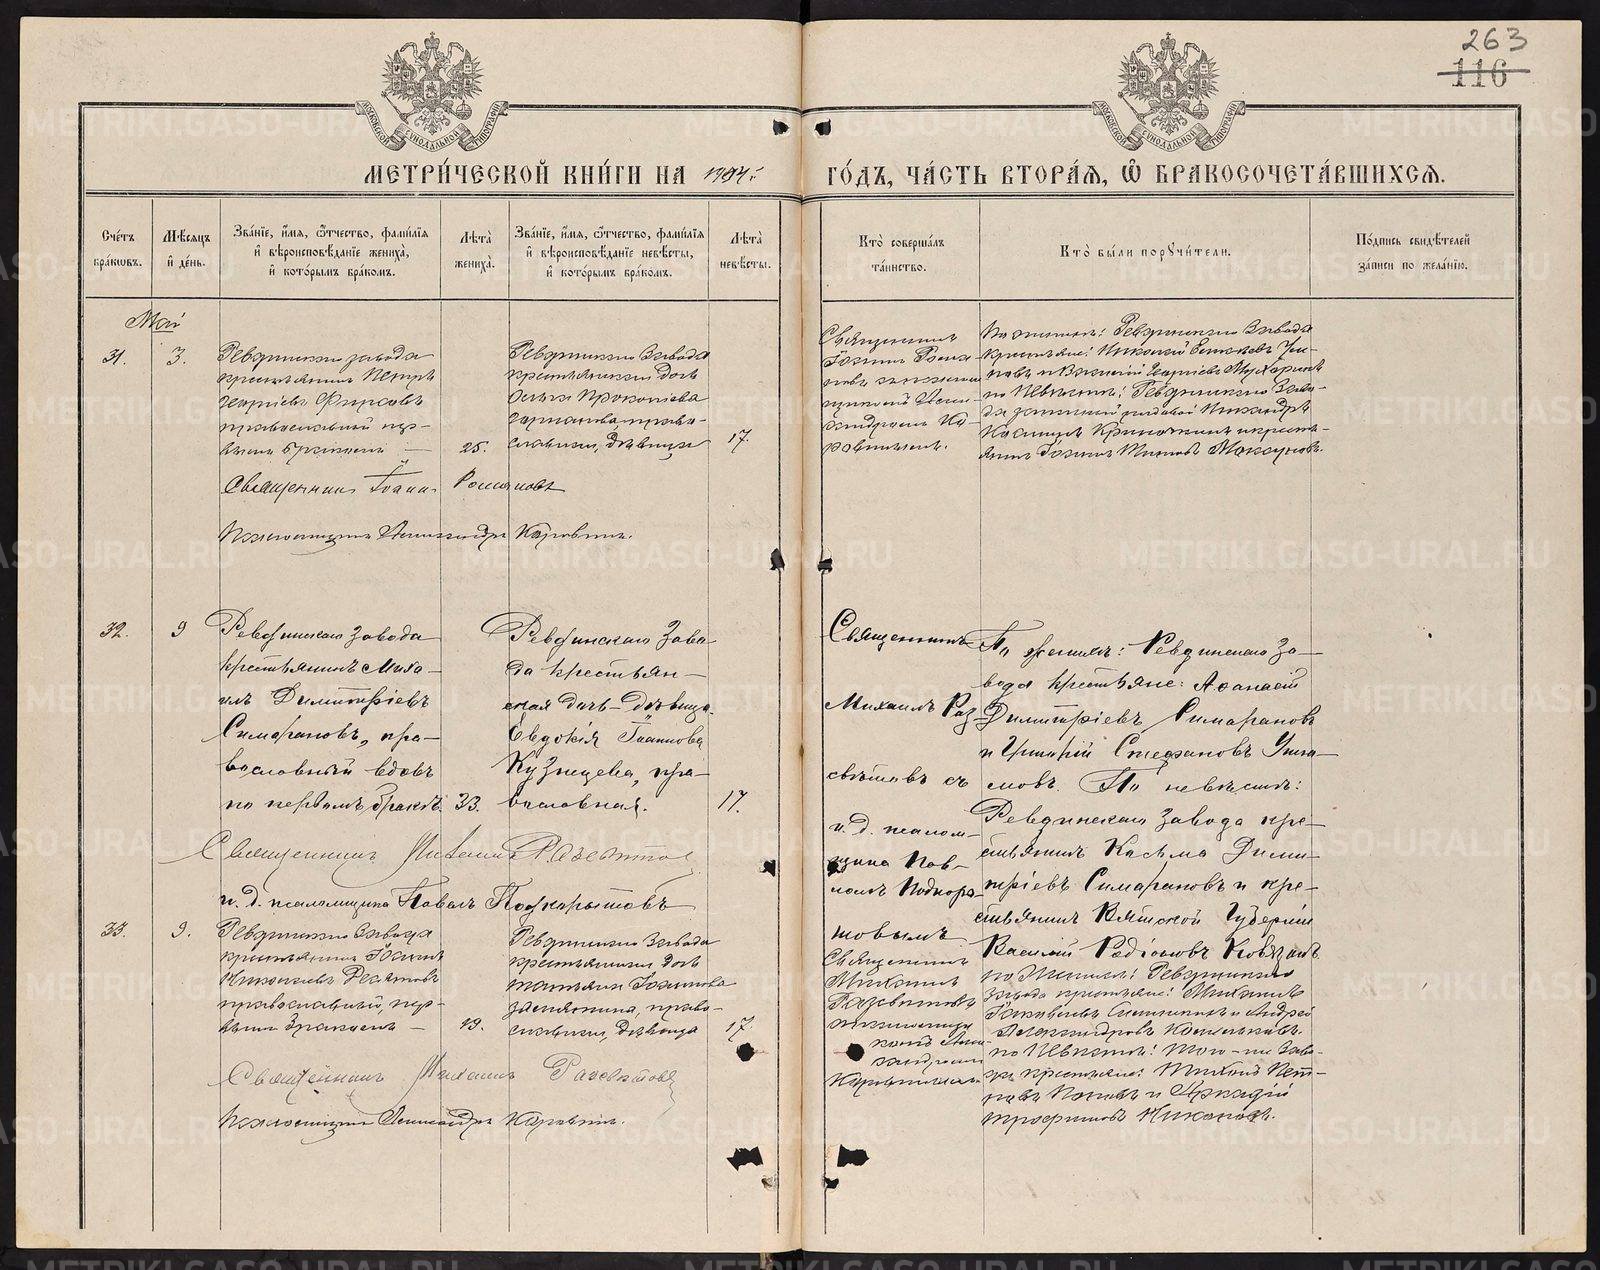 263
116
МОСКОВСКОЙ СѴНОДАЛЬНОЙ ТИПОГРАФІИ
МОСКОВСКОЙ СѴНОДАЛЬНОЙ ТИПОГРАФІИ
МЕТРИ́ЧЕСКОЙ КНИ́ГИ НА
ГО́ДЪ, ЧА́СТЬ ВТОРА́Ѧ, Ѽ БРАКОСОЧЕТА́ВШИХСѦ.
Сче́тъ
бра́кѡвъ.
Мѣ́сѧцъ
и҆ де́нь.
Зва́нїе, и҆́мѧ, ѻ҆́тчество, фами́лїѧ
и҆ вѣроисповѣ́данїе жениха̀,
и҆ кото́рымъ бра́комъ.
Лѣ́та̀
жениха̀.
Зва́нїе, и҆́мѧ, ѻ҆́тчество, фами́лїѧ
и҆ вѣроисповѣ́данїе невѣ́сты,
и҆ кото́рымъ бра́комъ.
Лѣ́та̀
невѣ́сты.
Кто̀ соверша́лъ
та́инство.
Кто̀ бы́ли порꙋчи́тели.
По́дпись свидѣ́телей
за́писи по жела́нїю.
Май
31.
3.
Ревдинскаго завода
крестьянинъ Петръ
Георгіевъ Фирсовъ
православный пер-
вымъ бракомъ —
25.
Ревдинскаго Завода
крестьянская дочь
Прокопіева
право-
славная, дѣвица
17.
Священникъ
Іоаннъ Рома-
новъ съ псалом-
щикомъ Алек-
сандромъ Ка-
ровинымъ.
По женихѣ: Ревдинскаго Завода
крестьяне: Николай
новъ и Василій Георгіевъ
по Невѣстѣ: Ревдинскаго Заво-
да запасный рядовой
и кресть-
янинъ Іоаннъ Титовъ
Священникъ Іоаннъ Романовъ
Псаломщикъ Александръ Каровинъ.
32.
9
Ревдинскаго Завода
крестьянинъ Миха-
илъ Димитріевъ
Симарановъ, пра-
вославный вдовъ
по первомъ бракѣ.
33.
Ревдинскаго Заво-
да крестьян-
ская дочь-дѣвица
Евдокія Іоаннова
Кузнецева, пра-
вославная.
17.
Священникъ
Михаилъ Раз-
свѣтовъ съ
и. д. псалом-
щика Пав-
ломъ Подкоры-
товымъ
По женихѣ: Ревдинскаго За-
вода крестьяне: Аѳанасій
Димитріевъ Симарановъ
и Григорій Стефановъ
По невѣстѣ:
Ревдинскаго Завода кре-
стьянинъ Косьма Дими-
тріевъ Симарановъ и кре-
стьянинъ Вятской Губерніи
Василій Родіоновъ
Священникъ Михаилъ Разсвѣтовъ
и. д. псаломщика Павелъ Подкорытовъ
33.
9.
Ревдинскаго Завода
крестьянинъ Іоаннъ
Николаевъ Десятовъ
православный, пер-
вымъ бракомъ —
19.
Ревдинскаго Завода
крестьянская дочь
Татьяна Іоаннова
право-
славная, дѣвица
17.
Священникъ
Михаилъ
Разсвѣтовъ съ
псаломщи-
комъ Алек-
сандромъ
Каровинымъ.
по Женихѣ: Ревдинскаго
Завода крестьяне: Михаилъ
Іаковлевъ и Андрей
Александровъ
по Невѣстѣ: того-же Заво-
да крестьяне: Тихонъ Пет-
ровъ Поповъ и Аркадій
Трофимовъ Никоновъ.
Священникъ Михаилъ Разсвѣтовъ
Псаломщикъ Александръ Каровинъ.
METRIKI.GASO-URAL.RU